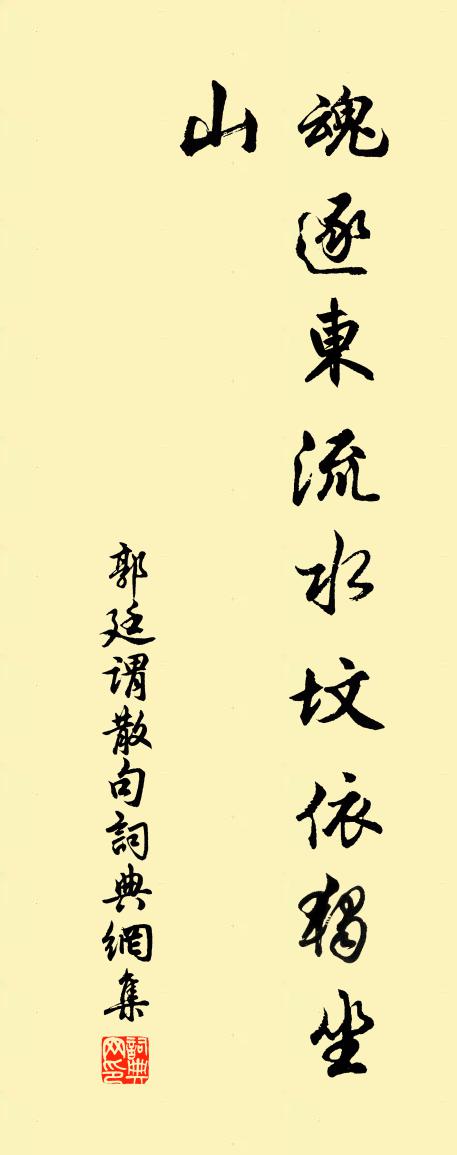 魂逐東流水坟依獨坐
山
郭廷谓散句詞典網集
詞典网印